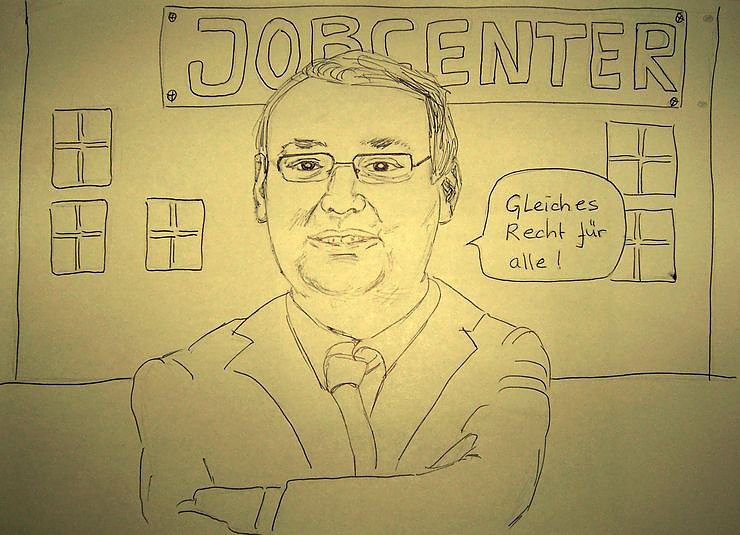 JOBCENTER
Gleiches
Recht für
alle !